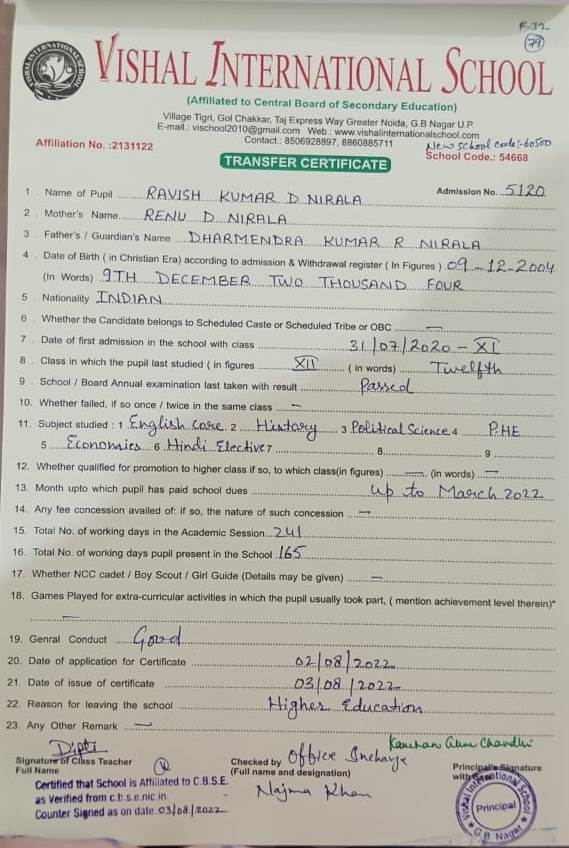 F-32
79
VISHAL INTERNATIONAL SCHOOL
(Affiliated to Central Board of Secondary Education)
Village Tigri, Gol Chakkar, Taj Express Way Greater Noida, G.B Nagar U.P.
E-mail.: vischool2010@gmail.com Web.: www.vishalinternationalschool.com
Contact.: 8506928897, 8860885711
New School Code:-60500
Affiliation No. :2131122 School Code.: 54668
TRANSFER CERTIFICATE
Admission No. 5120
1 . Name of Pupil RAVISH KUMAR D NIRALA
2 . Mother's Name RENU D NIRALA
3 . Father's / Guardian's Name DHARMENDRA KUMAR R NIRALA
4 . Date of Birth ( in Christian Era) according to admission & Withdrawal register ( In Figures ) 09-12-2004
(In Words) 9TH DECEMBER TWO THOUSAND FOUR
5 . Nationality INDIAN
6 . Whether the Candidate belongs to Scheduled Caste or Scheduled Tribe or OBC —
7 . Date of first admission in the school with class 31/07/2020 - XI
8 . Class in which the pupil last studied ( in figures XII ( in words) Twelfth
9 . School / Board Annual examination last taken with result Passed
10. Whether failed, if so once / twice in the same class —
11. Subject studied : 1 English core 2 History 3 Political Science 4 P.HE
5 Economics 6 Hindi Elective 7 8 9
12. Whether qualified for promotion to higher class if so, to which class(in figures) — (in words) —
13. Month upto which pupil has paid school dues up to March 2022
14. Any fee concession availed of: if so, the nature of such concession —
15. Total No. of working days in the Academic Session 241
16. Total No. of working days pupil present in the School 165
17. Whether NCC cadet / Boy Scout / Girl Guide (Details may be given) —
18. Games Played for extra-curricular activities in which the pupil usually took part, ( mention achievement level therein)*
—
19. Genral Conduct Good
20. Date of application for Certificate 02/08/2022
21. Date of issue of certificate 03/08/2022
22. Reason for leaving the school Higher Education
23. Any Other Remark —
Dipti
Signature of Class Teacher
Full Name
Checked by Office Incharge
(Full name and designation)
Najma Khan
Principal's Signature
with
Certified that School is Affiliated to C.B.S.E.
as Verified from c.b.s.e.nic.in.
Counter Signed as on date 03/08/2022
Vishal International School
Principal
G.B. Nagar